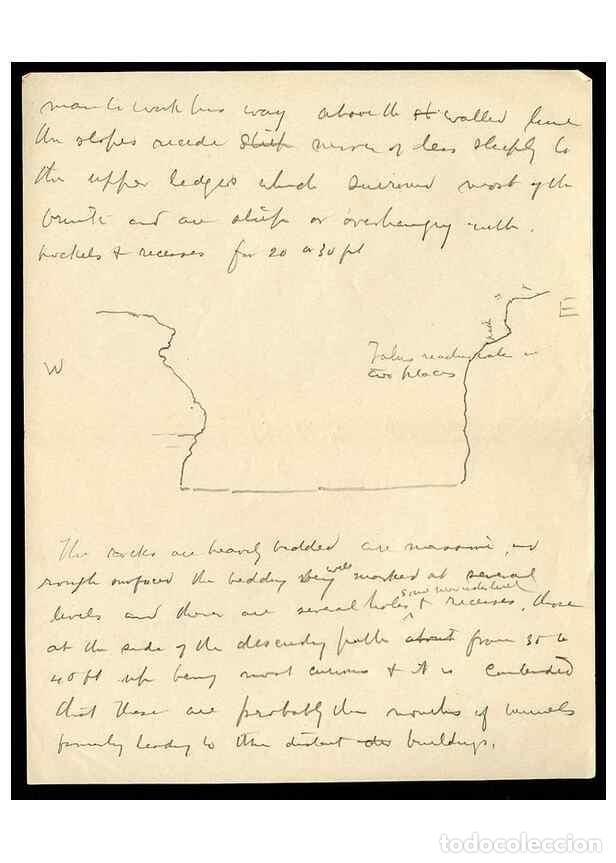 man to work his way above the st walled line
the slopes recede steep more or less steeply to
the upper ledges which surround most of the
brink and are steep or overhanging with
pockets & recesses for 20 or 30 ft
E
W
Takes
two places
The rocks are heavily bedded are massive, and
rough surfaced the bedding being well marked at several
levels and there are several holes & recesses, those
some
at the side of the descending path about from 35 to
40 ft up being most curious & it is contended
that these are probably the mouths of tunnels
formerly leading to the distant buildings.
todocoleccion